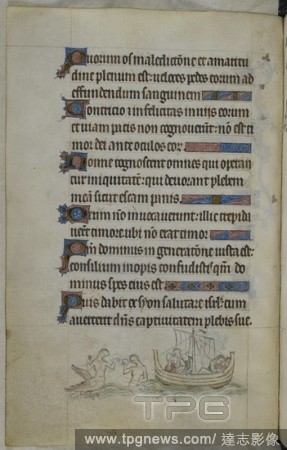 Quorum os maledictõne et amaritu
dine plenum est: veloces pedes eorum ad
effundendum sanguinem
Contricio et infelicitas in viis eorum
et viam pacis non cognoverũt: nõ est ti
mor dei ante oculos eor
Nonne cognoscent omnes qui operan
tur iniquitatẽ: qui devorant plebem
meã sicut escam panis
Deum nõ invocaverunt: illic trepida
verũt timore ubi nõ erat timor
Qm̃ dominus in generatõne iusta est:
consilium inopis confudistis qm̃ do
minus spes eius est
Quis dabit ex syon salutare isrł: cum
averterit dñs captivitatem plebis sue
TPG
www.tpgnews.com / 達志影像